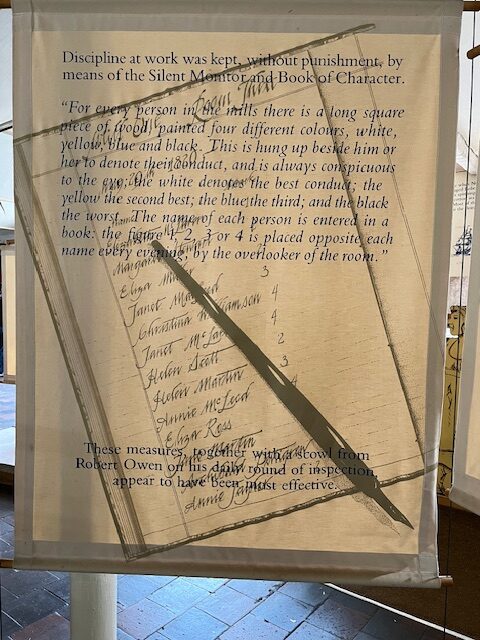 Discipline at work was kept, without punishment, by
means of the Silent Monitor and Book of Character.
"For every person in the mills there is a long square
piece of wood, painted four different colours, white,
yellow, blue and black. This is hung up beside him or
her to denote their conduct, and is always conspicuous
to the eye; the white denotes the best conduct; the
yellow the second best; the blue the third; and the black
the worst. The name of each person is entered in a
book: the figure 1, 2, 3 or 4 is placed opposite each
name every evening, by the overlooker of the room."
Room
Margaret
Eliza 3
Janet 4
Christina 4
Janet 2
Helen Scott 3
Helen Martin 4
Annie McLeod
Eliza Ross
Martin
Annie
These measures, together with a scowl from
Robert Owen on his daily round of inspection,
appear to have been most effective.